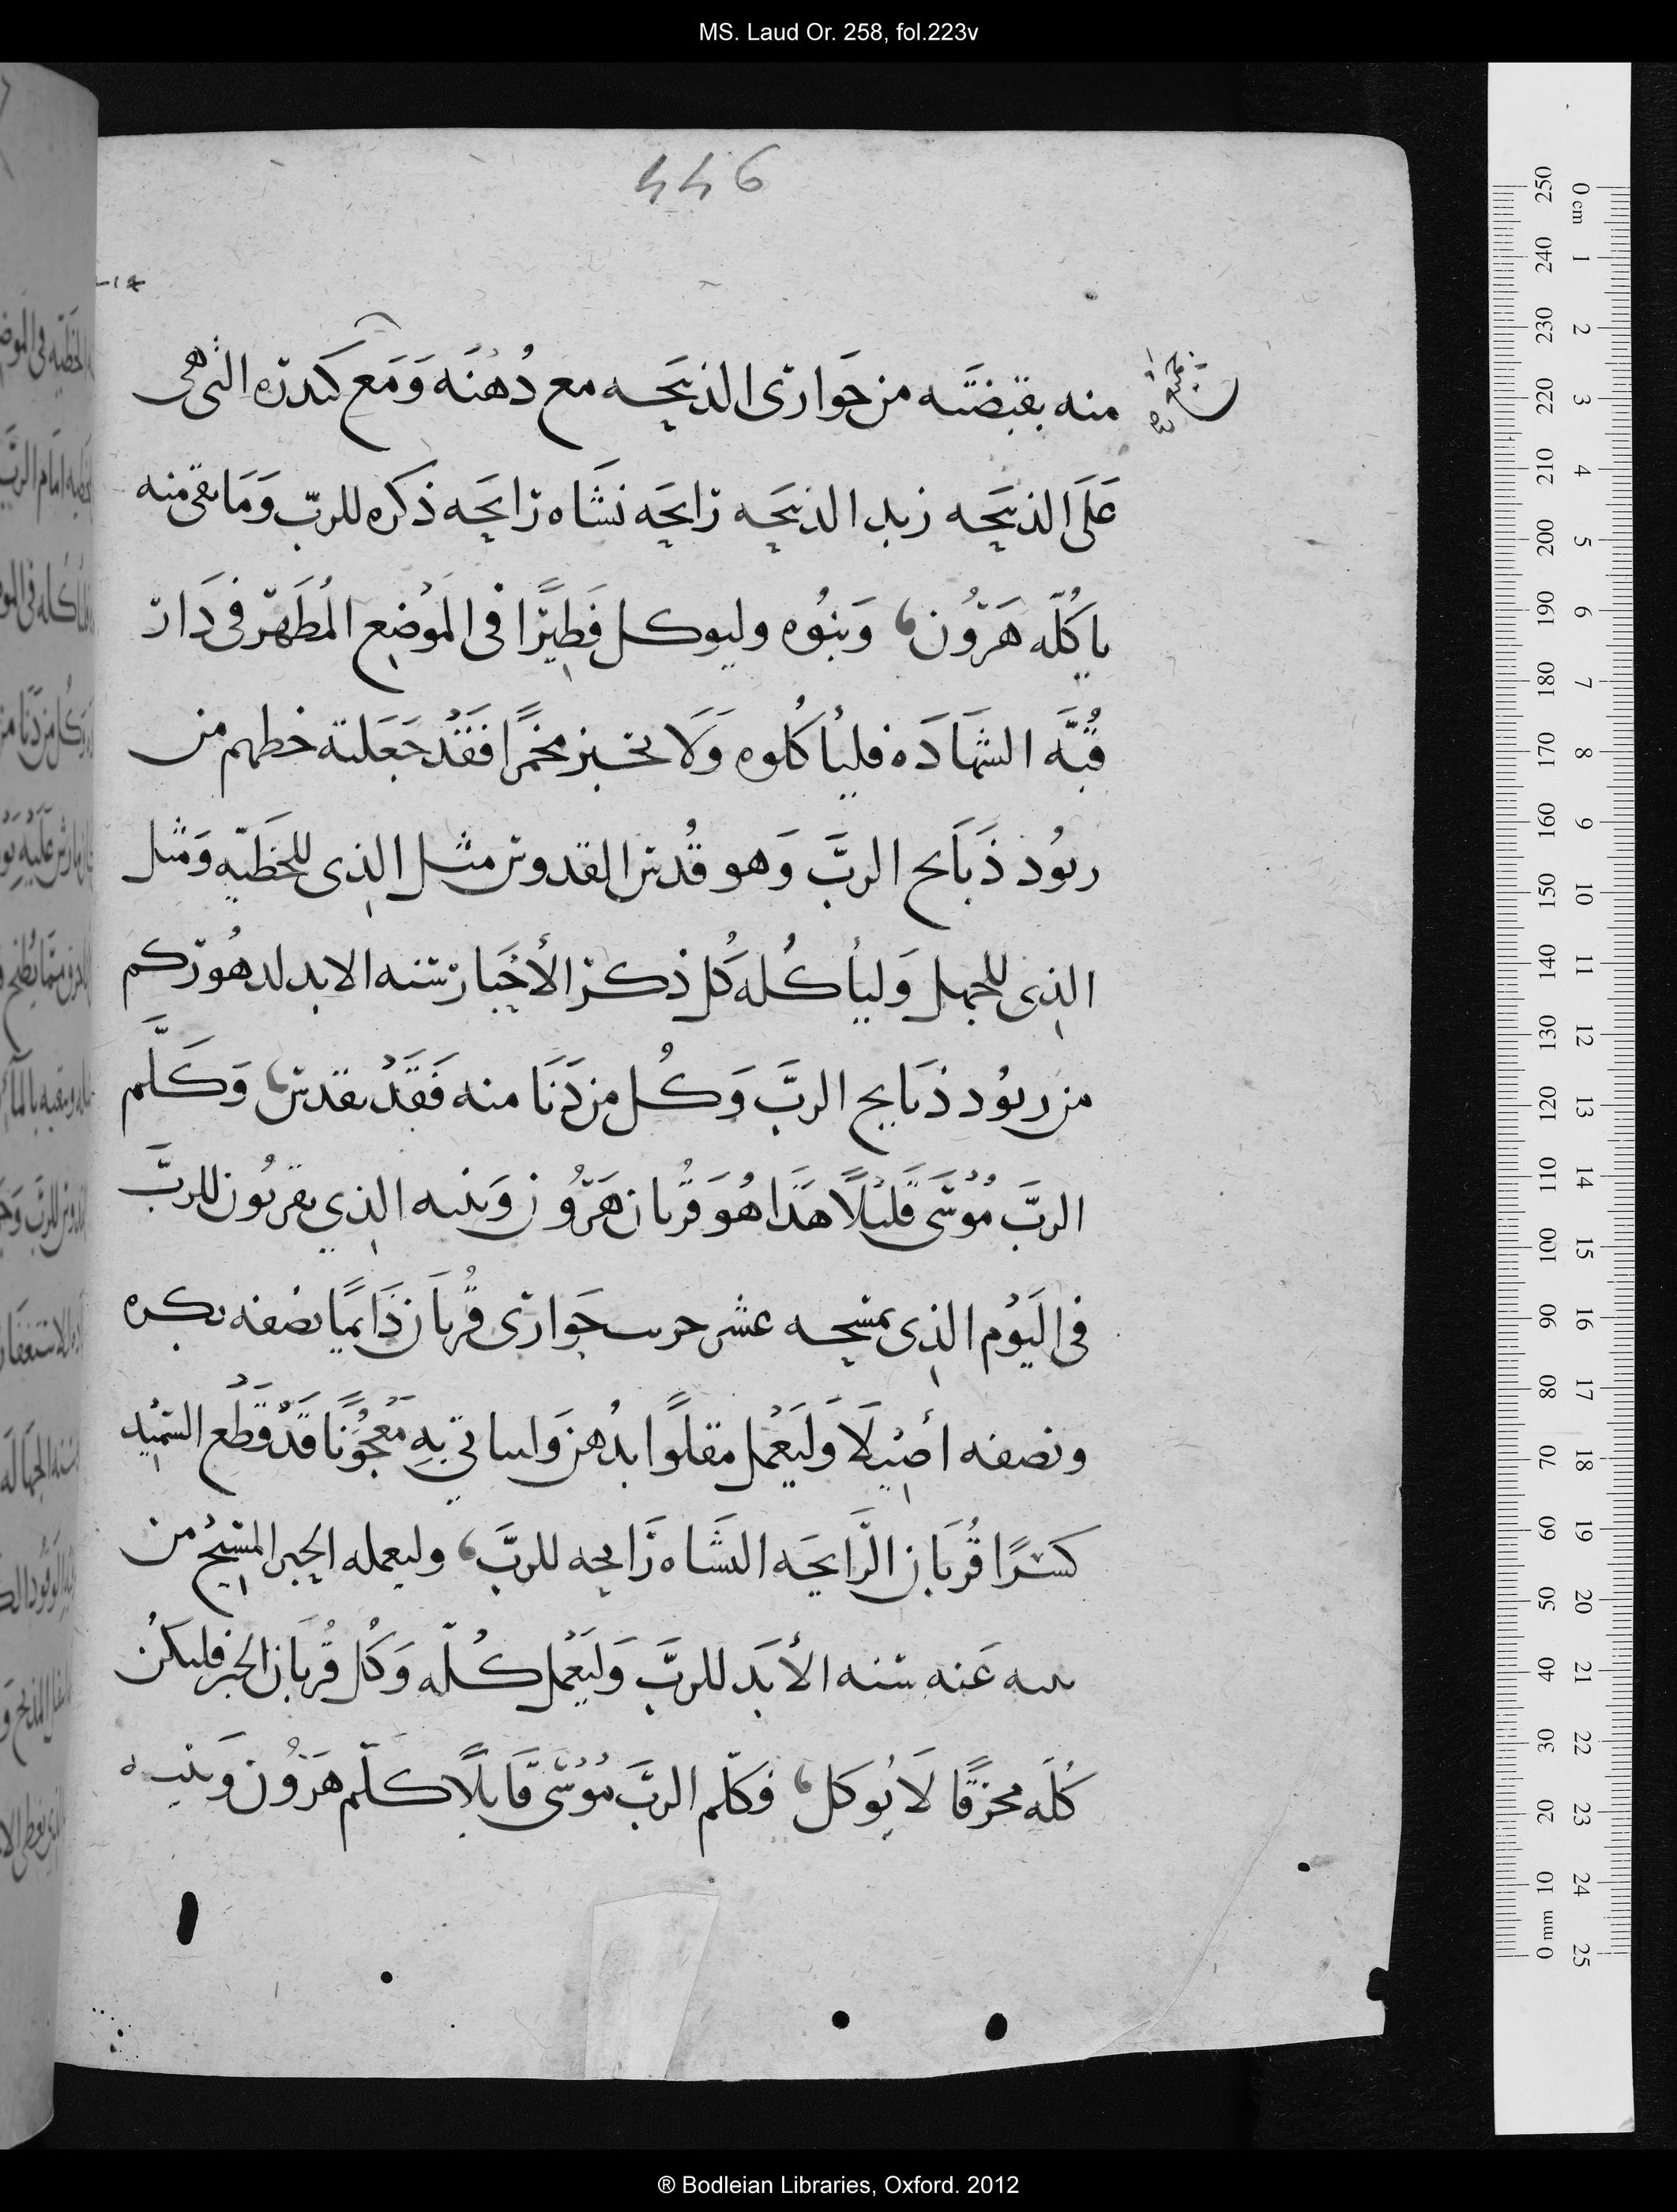 MS. Laud Or. 258, fol.223v
446
منه بقبضَته من حَوارى الذبيَحه مع دُهنَه وَمَع كندره التى هى
عَلَى الذبيَحه زبد الذبيَحه رَايحَه نشَاه رَايحَه ذكره للربّ وَمَا بقى منه
ياكُلَه هَرُون وَبنُوه وليوكل فَطِيرًا فى المَوُضِع المُطَهر فى دَار
قُبَّه الشهَادَه فليُاكُلوه وَلَا يخبز مخمرًا فَقَدُ جَعَلته خطهم من
ربوُد ذَبَايح الربَّ وَهو قُدس القدوس مثل الذِى للخَطَيه وَمثل
الذِى للجهل وَليأكُله كُل ذكر الأحَبار سنه الابد لدهُوركم
من ربوُد ذبَايح الربَّ وَكُل من دَنَا منه فَقَدُ بقدس وَكَلَّم
الربَّ مُوُسَى قَايُلًا هَذا هُوَ قُربان هَرُون وَبنيه الذِي يقربُون للربَّ
فى اليَوُم الذِى يمسحه عشر حريب حَوارى قُربَان دَايمًا نصفه بكره
ونصفه أصِيلَا وَليَعُمل مقلوًا بدُهن وَلياتي بِهِ مَعُجُونًا قَدُ قَطُع السَميُد
كسرًا قُربَان الرَايحَه النشَاه رَايحه للربَّ وليعمله الحِبر المسِيُح من
بنيه عَنه سنه الأبَد للربَّ وَليَعُمل كُلّه وَكُل قُربَان الحبر فليكُن
كُلَه محرَقًا لَا يُوكل فكلّم الربَّ مُوُسَى قَايلًا كلّم هَرُون وَبنيه
® Bodleian Libraries, Oxford. 2012